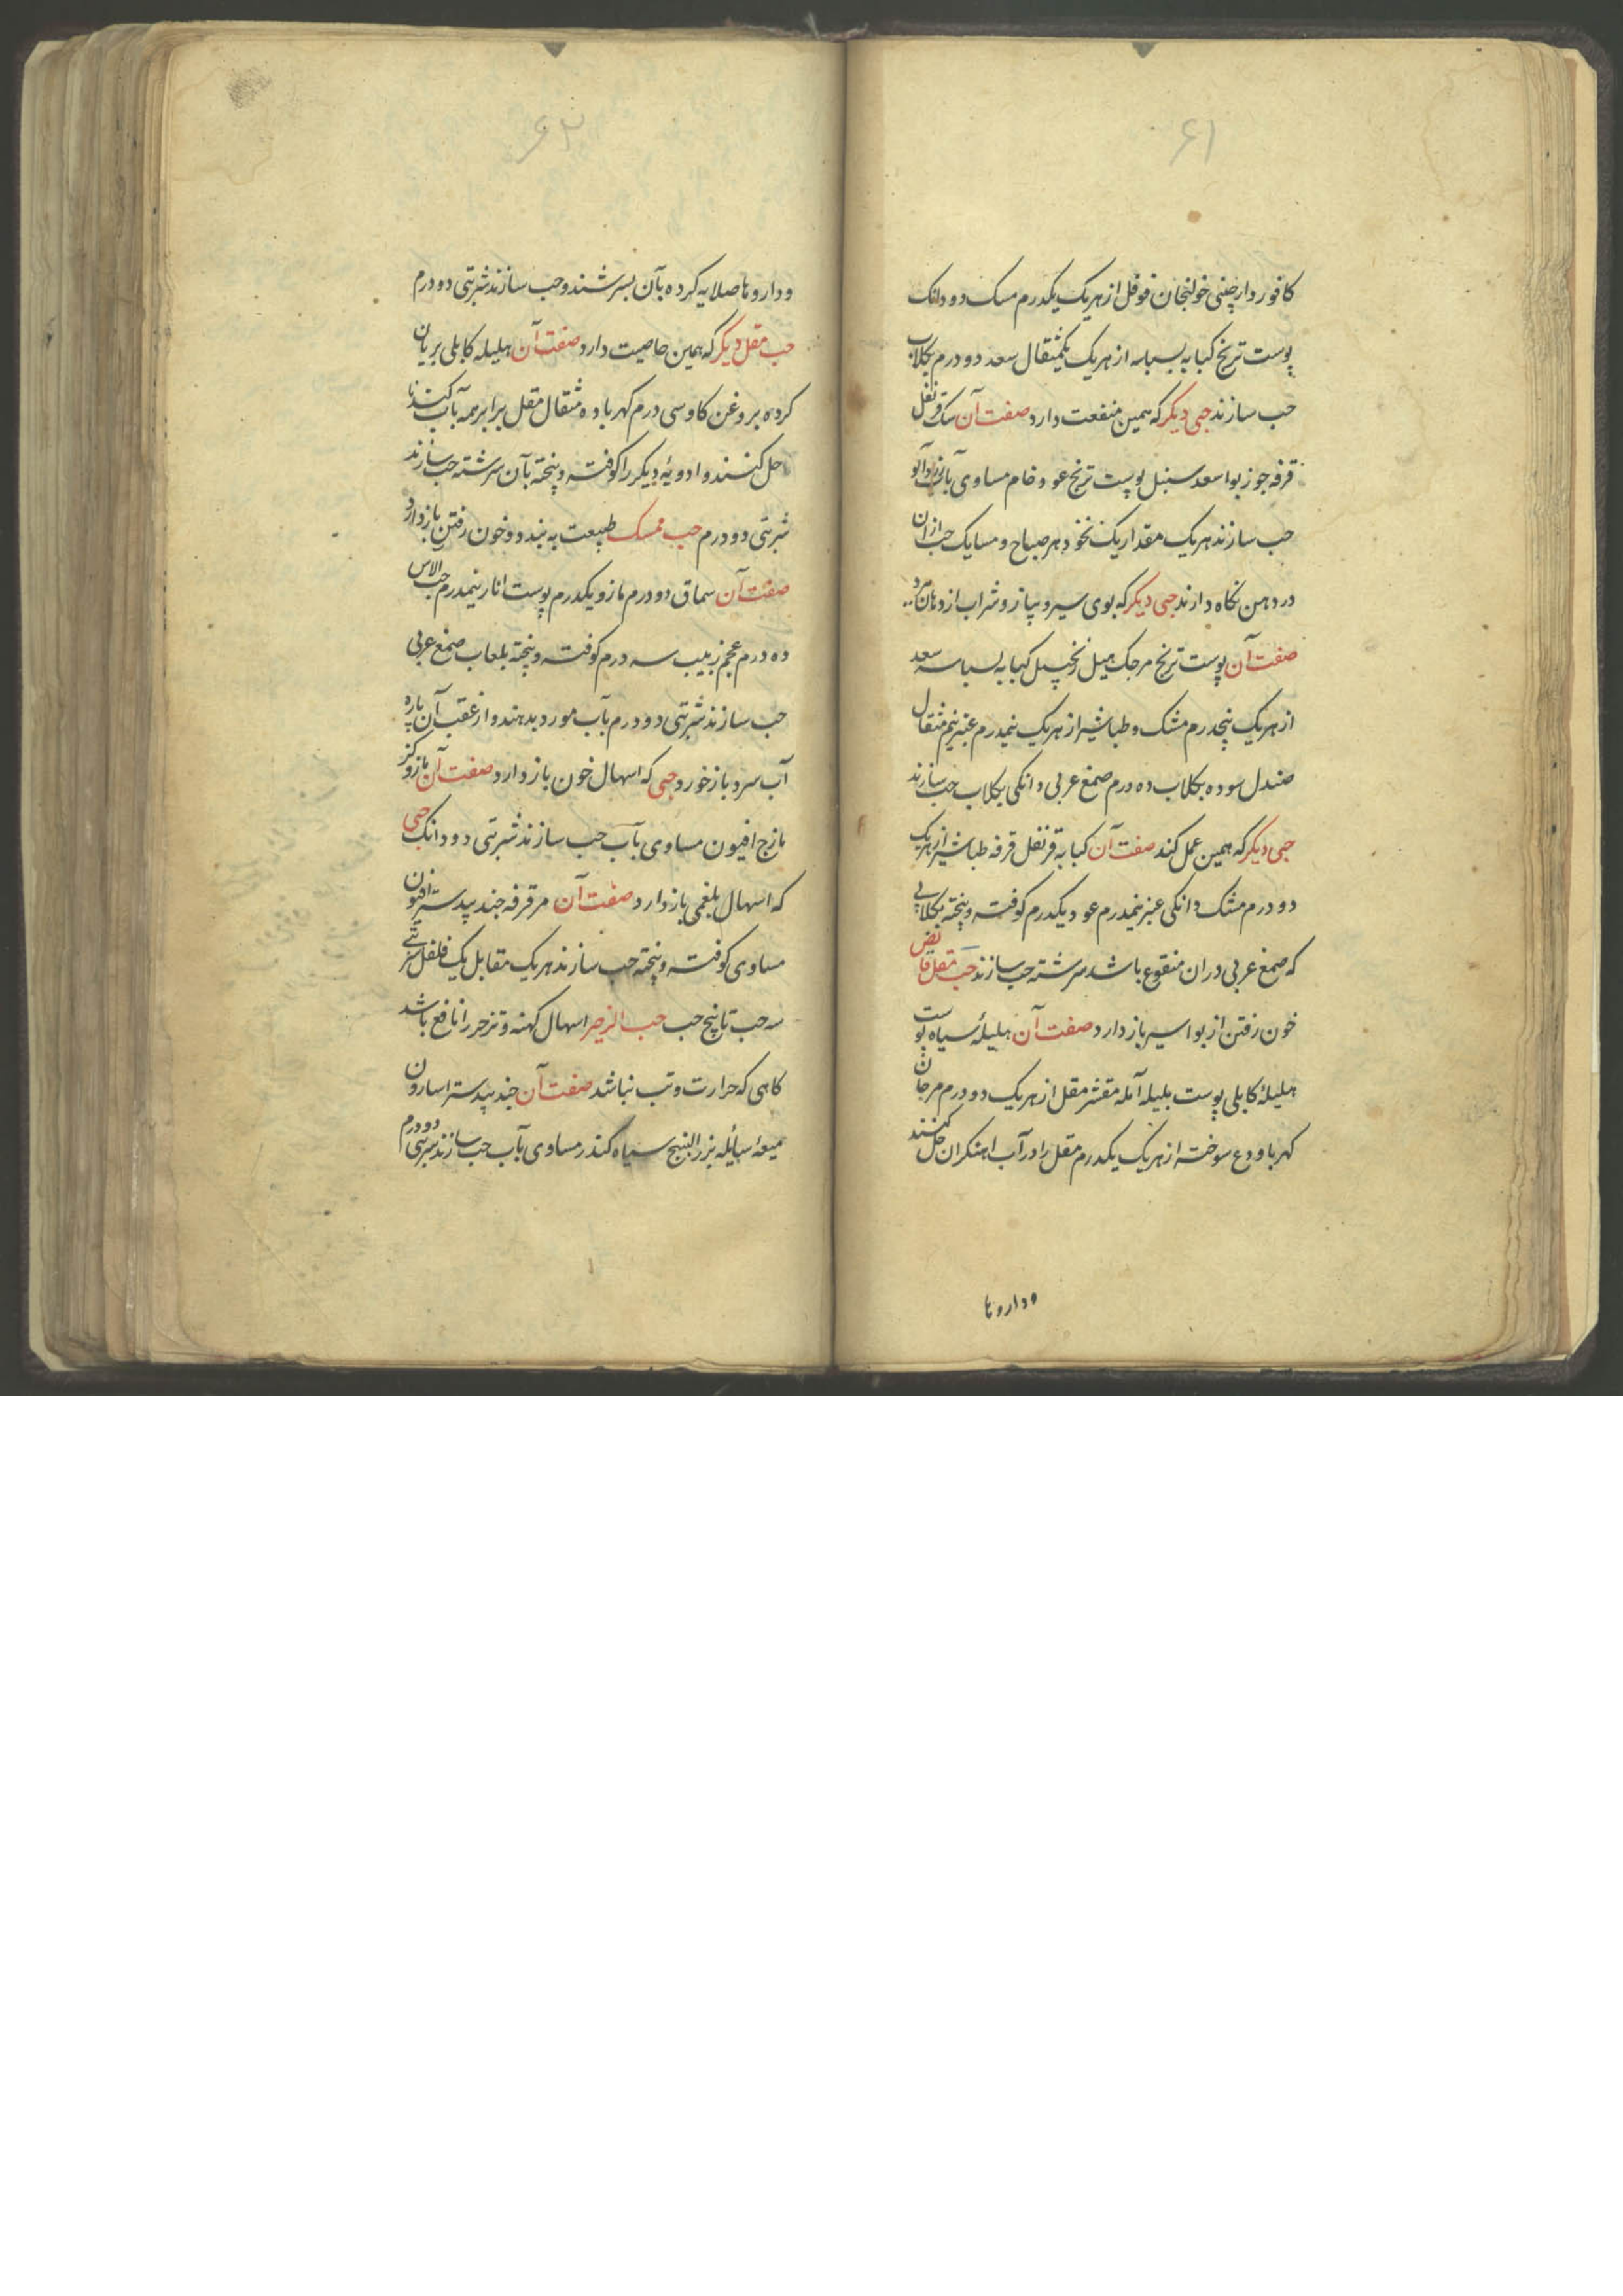 ۶۱
کافور دارچینی خولنجان فوفل از هریک یکدرم مسک دو دانک
پوست ترنج کبابه بسباسه از هریک یکمثقال سعد دو درم بکلاب
حب سازند حبی دیکر که همین منفعت دارد صفت آن سک قرنفل
قرفه جوز بوا سعد سنبل پوست ترنج عود خام مساوی بآب
حب سازند هریک مقدار یک نخود هر صباح و مسا یک حب ازان
در دهن نکاه دارند حبی دیکر که بوی سیر و پیاز و شراب از دهان
صفت آن پوست ترنج هیل زنجبیل کبابه بسباسه سعد
از هریک پنجدرم مشک و طباشیر از هریک نیمدرم عنبر نیم مثقال
صندل سوده بکلاب ده درم صمغ عربی دانکی بکلاب حب سازند
حبی دیکر که همین عمل کند صفت آن کبابه قرنفل قرفه طباشیر از هریک
دو درم مشک دانکی عنبر نیمدرم عود یکدرم کوفته و پخته بکلابی
که صمغ عربی دران منقوع باشد سرشته حب سازند حب مقل قابض
خون رفتن از بواسیر باز دارد صفت آن هلیلهٔ سیاه پوست
هلیلهٔ کابلی پوست بلیله آمله مقشر مقل از هریک دو درم مرجان
کهربا ودع سوخته از هریک یکدرم مقل را در آب اهنکران حل کنند
وداروها
۶۲
وداروها صلایه کرده بآن بسرشند و حب سازند شربتی دو درم
حب مقل دیکر که همین خاصیت دارد صفت آن هلیله کابلی بریان
کرده بروغن کاو سی درم کهربا ده مثقال مقل برابر همه بآب کندنا
حل کنند و ادویهٔ دیکر را کوفته و پخته بآن سرشته حب سازند
شربتی دو درم حب ممسک طبیعت به بندد و خون رفتن باز دارد
صفت آن سماق دو درم مازو یکدرم پوست انار نیمدرم حب الاس
ده درم عجم زبیب سه درم کوفته و پخته بلعاب صمغ عربی
حب سازند شربتی دو درم بآب مورد بدهند و از عقب آن پاره
آب سرد باز خورد حبی که اسهال خون باز دارد صفت آن مازو کز
مازج افیون مساوی بآب حب سازند شربتی دو دانک حبی
که اسهال بلغمی باز دارد صفت آن مر قرفه جند بیدستر افیون
مساوی کوفته و پخته حب سازند هریک مقابل یک فلفل شربتی
سه حب تا پنج حب حب الزحیر اسهال کهنه و تزحر را نافع باشد
کاهی که حرارت و تب نباشد صفت آن جند بیدستر اسارون
میعهٔ سایله بزر البنج سیاه کندر مساوی بآب حب سازند شربتی دو درم